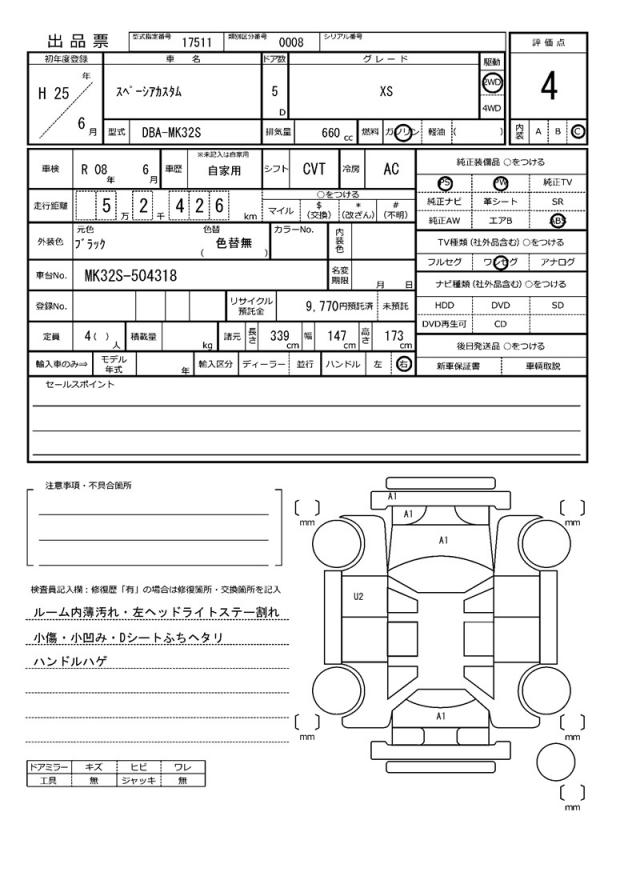 出品票 型式指定番号 17511 類別区分番号 0008 シリアル番号
評価点
4
内装 A B C
初年度登録 車名 ドア数 グレード 駆動
H 25 年 6 月 スペーシアカスタム 5 D XS 2WD 4WD
型式 DBA-MK32S 排気量 660 cc 燃料 ガソリン 軽油 ( )
車検 R 08 年 6 月 車歴 ※未記入は自家用 自家用 シフト CVT 冷房 AC
走行距離 5 万 2 千 4 2 6 km ○をつける
マイル $ (交換) * (改ざん) # (不明)
外装色 元色 ブラック 色替 ( 色替無 ) カラーNo. 内装色
車台No. MK32S-504318 名変期限 月 日
登録No. リサイクル預託金 9,770円預託済 未預託
定員 4( ) 人 積載量 kg 諸元 長さ 339 cm 幅 147 cm 高さ 173 cm
輸入車のみ⇒ モデル年式 年 輸入区分 ディーラー 並行 ハンドル 左 右
純正装備品 ○をつける
PS PW 純正TV
純正ナビ 革シート SR
純正AW エアB ABS
TV種類 (社外品含む) ○をつける
フルセグ ワンセグ アナログ
ナビ種類 (社外品含む) ○をつける
HDD DVD SD
DVD再生可 CD
後日発送品 ○をつける
新車保証書 車輌取説
セールスポイント
注意事項・不具合箇所
検査員記入欄：修復歴「有」の場合は修復箇所・交換箇所を記入
ルーム内薄汚れ・左ヘッドライトステー割れ
小傷・小凹み・Dシートふちヘタリ
ハンドルハゲ
ドアミラー キズ ヒビ ワレ
工具 無 ジャッキ 無
A1
A1
A1
U2
A1
[ ] mm
[ ] mm
[ ] mm
[ ] mm
[ ] mm